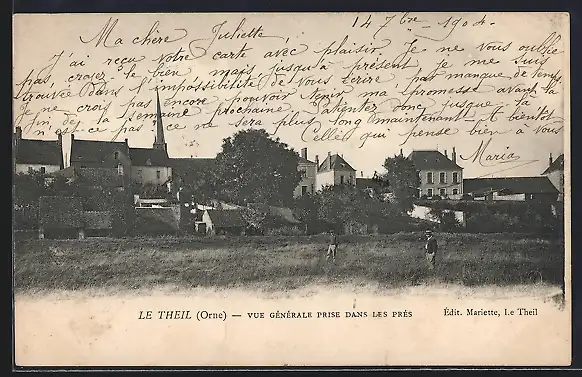 14 7bre 1904.
Ma chère Juliette
J'ai reçu votre carte avec plaisir. Je ne vous oublie
pas croyez le bien mais jusqu'à présent je me suis
trouvée dans l'impossibilité de vous écrire pas manque de temps,
Je ne crois pas encore pouvoir tenir ma promesse avant la
fin de la semaine prochaine. Patientez donc jusque là
n'est-ce pas ce ne sera plus long maintenant. A bientôt
Celle qui pense bien à vous
Maria
LE THEIL (Orne) — VUE GÉNÉRALE PRISE DANS LES PRÉS
Édit. Mariette, Le Theil